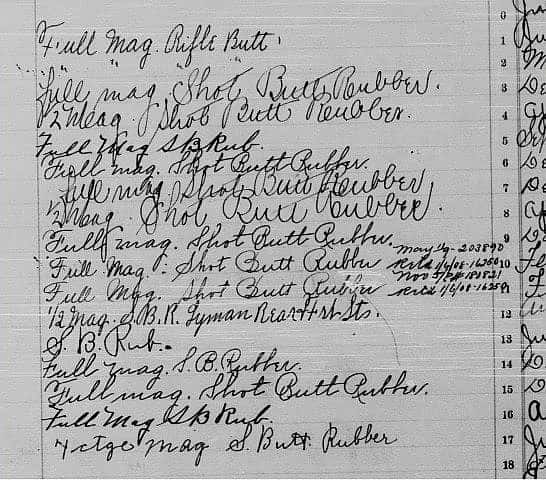 0
Full Mag. Rifle Butt.
1
2
" " "
3
Full mag. Shot Butt Rubber.
4
1/2 Mag. Shot Butt Rubber.
5
Full Mag S B Rub.
6
Full mag. Shot Butt Rubber.
7
Full mag Shot Butt Rubber
8
1/2 mag. Shot Butt Rubber
9
Full mag. Shot Butt Rubber.
10
Full Mag. Shot Butt Rubber
Full Mag. Shot Butt Rubber
12
1/2 mag. S.B.R. Lyman Rear & Frt Sts.
13
S. B. Rub.
14
Full mag. S.B. Rubber.
15
Full mag. Shot Butt Rubber.
16
Full Mag S B Rub.
17
7 ctge mag S. Butt Rubber
18